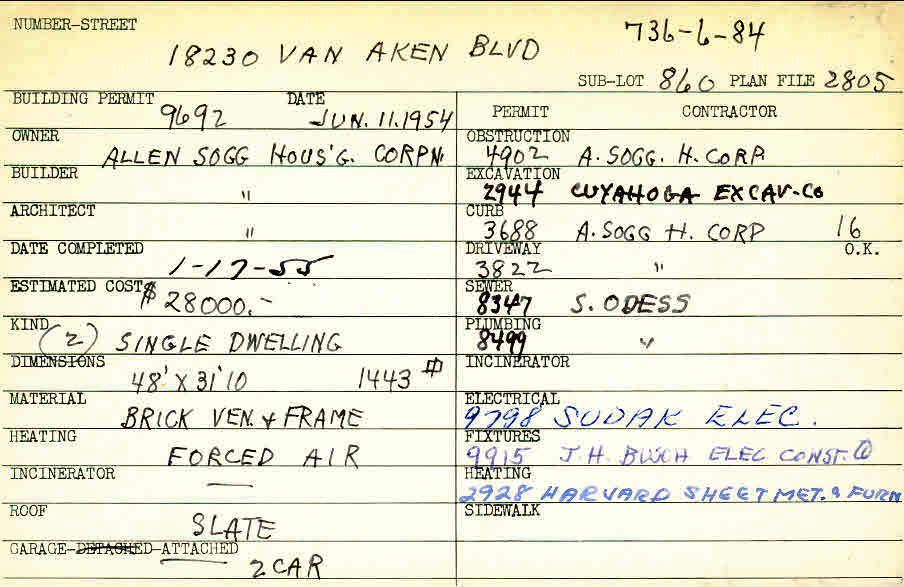 NUMBER-STREET
736-6-84
18230 VAN AKEN BLVD
SUB-LOT 860 PLAN FILE 2805
BUILDING PERMIT DATE
9692 JUN. 11. 1954
PERMIT CONTRACTOR
OWNER
ALLEN SOGG HOUS'G. CORPN.
OBSTRUCTION
4902 A. SOGG. H. CORP.
BUILDER
"
EXCAVATION
2944 CUYAHOGA EXCAV-CO
ARCHITECT
"
CURB
3688 A. SOGG H. CORP 16
O.K.
DATE COMPLETED
1-17-55
DRIVEWAY
3822 "
ESTIMATED COST
$28000.-
SEWER
8347 S. ODESS
KIND
(2) SINGLE DWELLING
PLUMBING
8499 "
DIMENSIONS
48' X 31'10 1443
INCINERATOR
MATERIAL
BRICK VEN. & FRAME
ELECTRICAL
9798 SUDAK ELEC.
HEATING
FORCED AIR
FIXTURES
9915 J.H. BUSCH ELEC CONST.
INCINERATOR
—
HEATING
2928 HARVARD SHEET MET. & FURN
ROOF
SLATE
SIDEWALK
GARAGE-DETACHED-ATTACHED
2 CAR